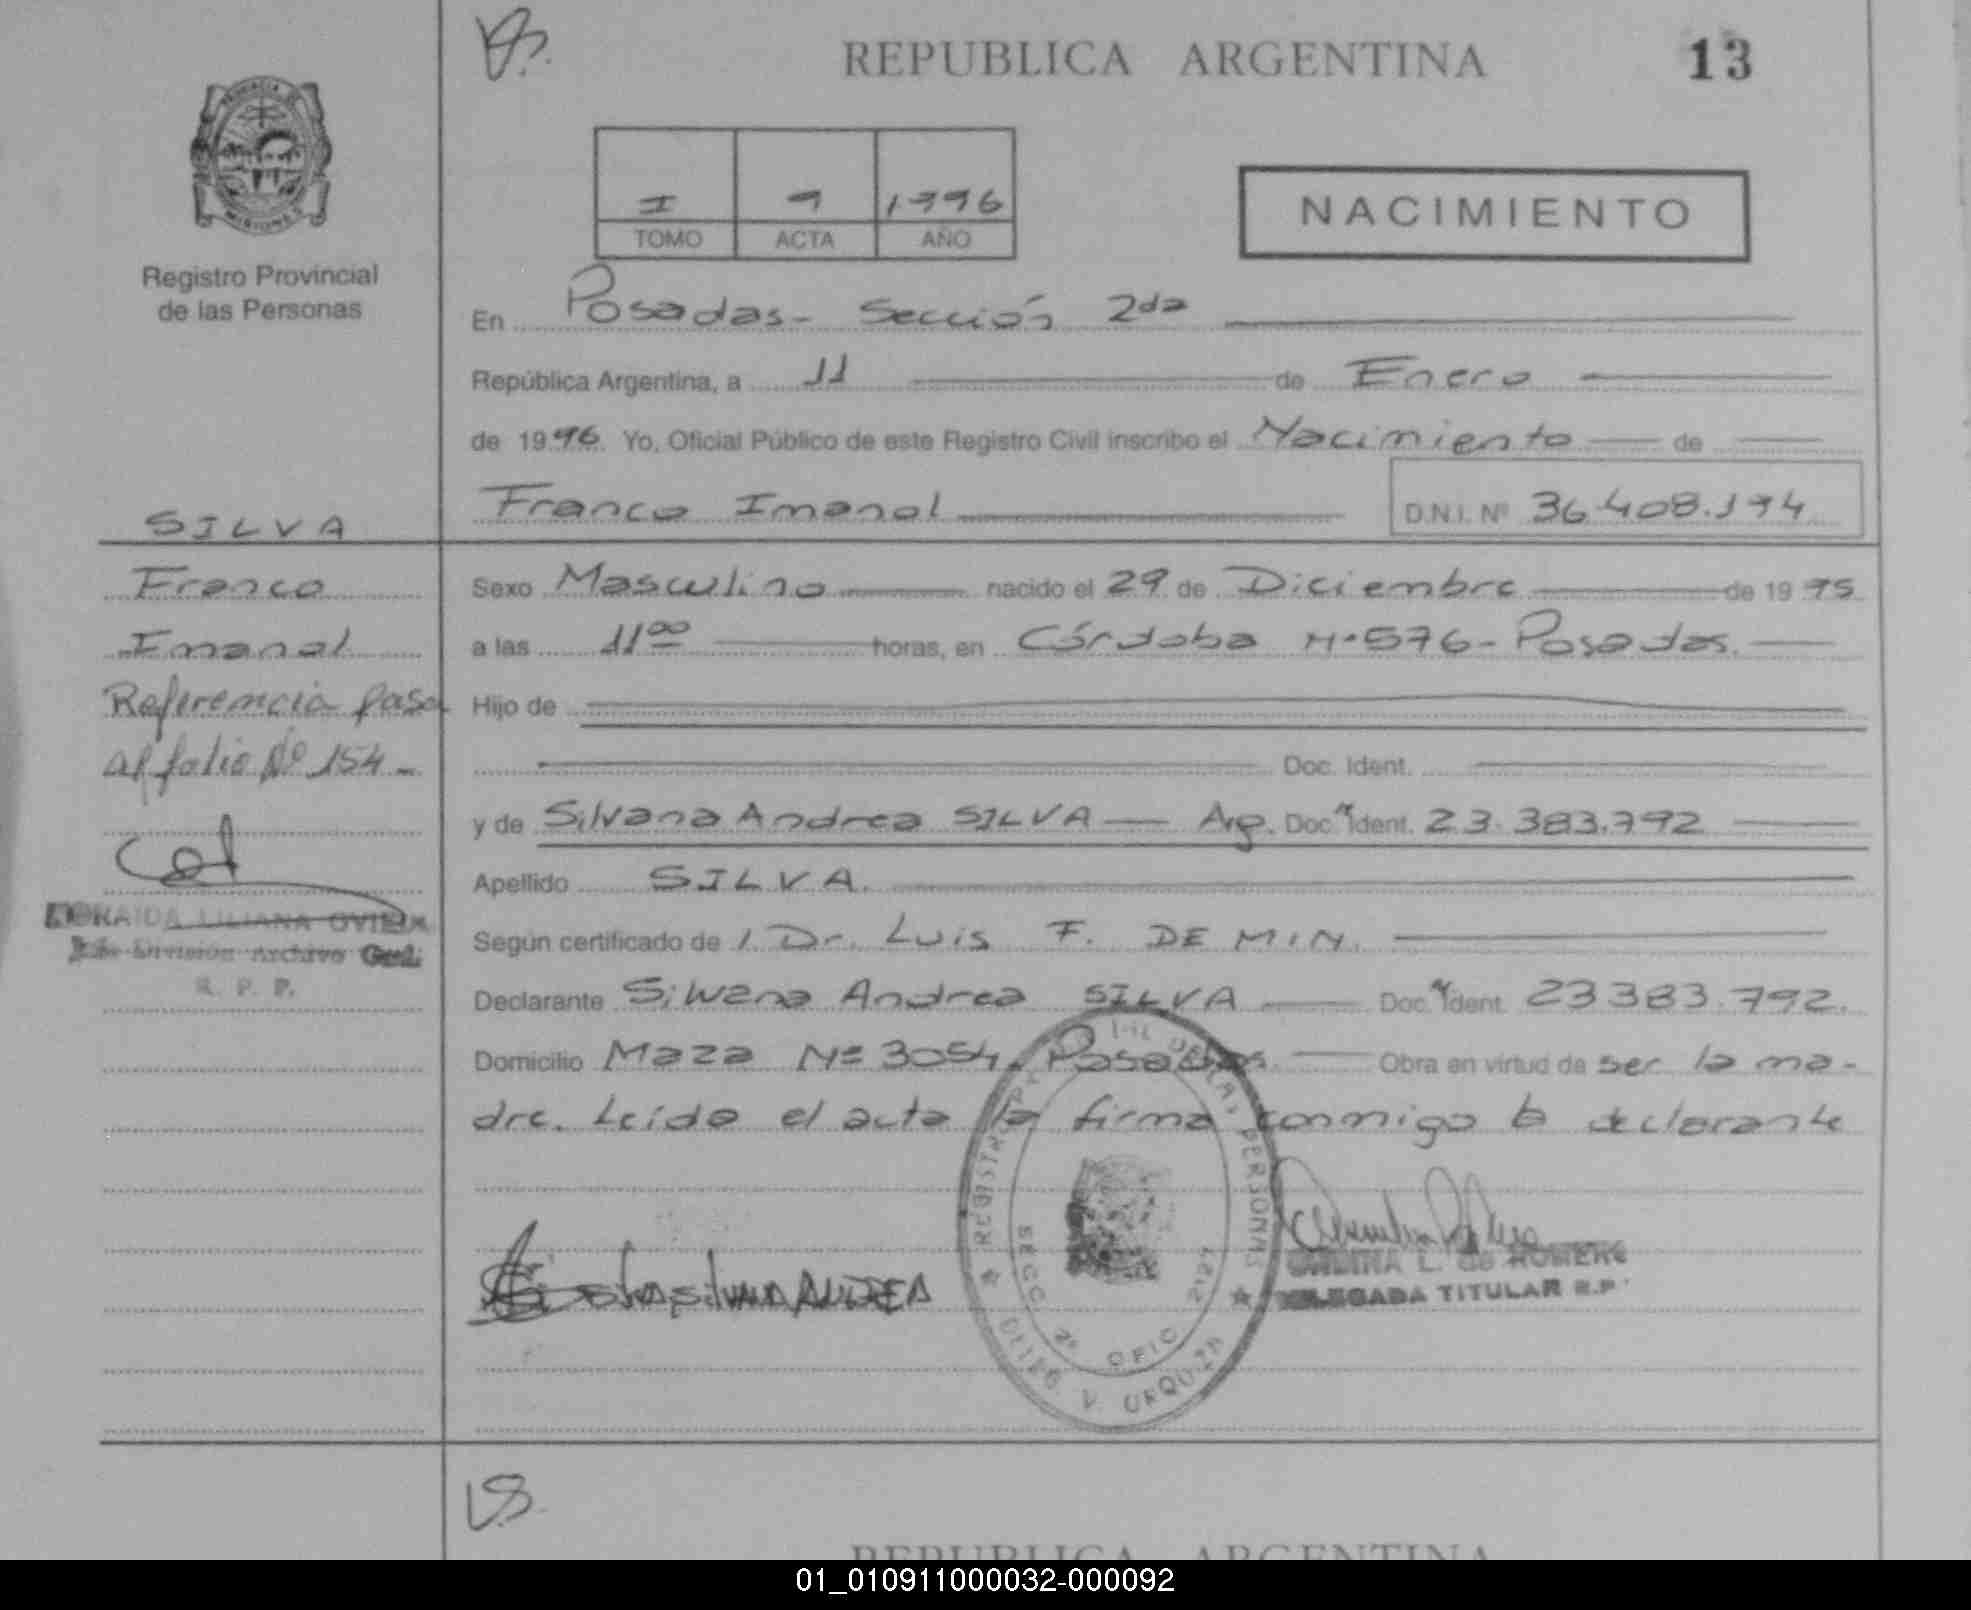 REPUBLICA ARGENTINA
13
I 9 1996
TOMO ACTA AÑO
NACIMIENTO
Registro Provincial
de las Personas
En Posadas - Sección 2da
República Argentina, a 11 de Enero
de 1996. Yo, Oficial Público de este Registro Civil inscribo el Nacimiento de
Franco Imanol D.N.I. Nº 36.408.194
SILVA
Franco
Imanol
Referencia pasa
al folio Nº 154 -
LILIANA
División Archivo Gral.
R. P. P.
Sexo Masculino nacido el 29 de Diciembre de 1995
a las 11⁰⁰ horas, en Córdoba Nº 576 - Posadas.
Hijo de
Doc. Ident.
y de Silvana Andrea SILVA Arg. Doc. Ident. 23.383.792
Apellido SILVA.
Según certificado de l Dr. Luis F. DE MIN.
Declarante Silvana Andrea SILVA Doc. Ident. 23.383.792.
Domicilio Maza Nº 3054, Posadas. Obra en virtud de ser la ma-
dre. Leída el acta la firma conmigo la declarante
SILVANA ANDREA
REGISTRO DE LAS PERSONAS
SECC. 2ª OFIC. 2121
V. URQUIZA
L. de ROMERO
DELEGADA TITULAR R.P.
REPUBLICA ARGENTINA
01_010911000032-000092